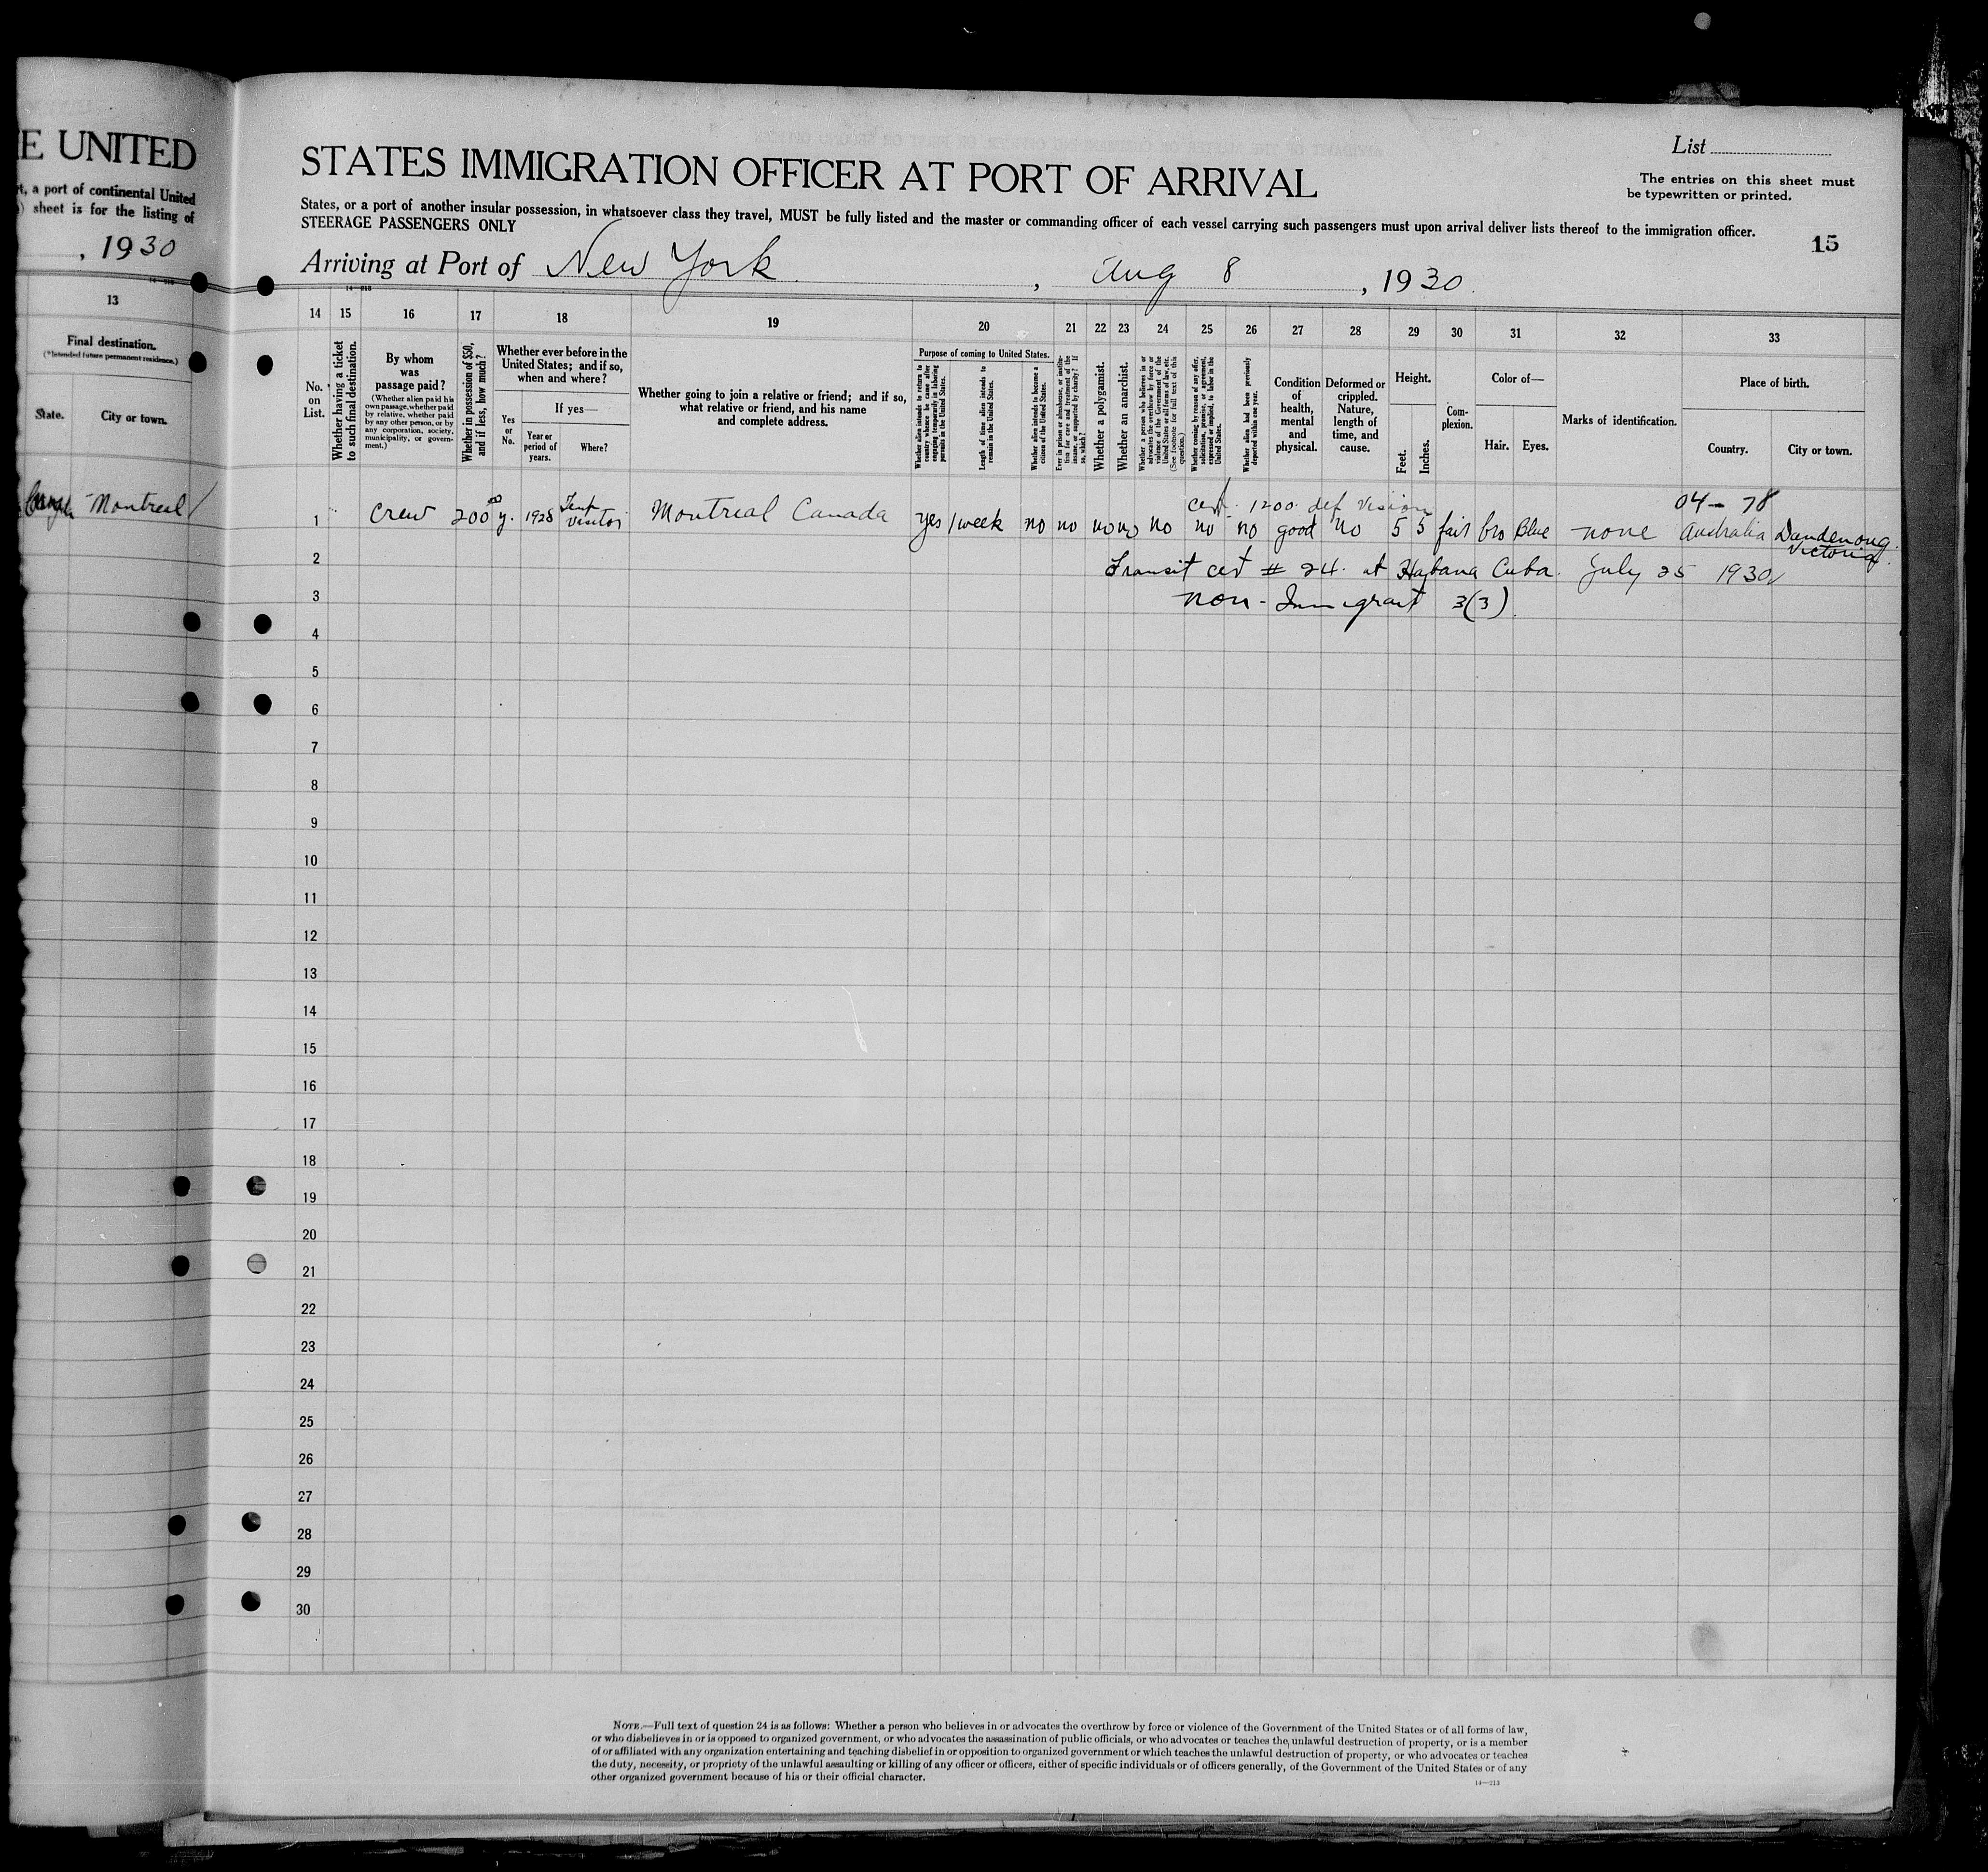 E UNITED
t, a port of continental United
) sheet is for the listing of
, 1930
13
Final destination.
(*Intended future permanent residence.)
State. City or town.
Montreal /
STATES IMMIGRATION OFFICER AT PORT OF ARRIVAL
List
The entries on this sheet must
be typewritten or printed.
States, or a port of another insular possession, in whatsoever class they travel, MUST be fully listed and the master or commanding officer of each vessel carrying such passengers must upon arrival deliver lists thereof to the immigration officer.
STEERAGE PASSENGERS ONLY
15
Arriving at Port of New York , Aug 8 , 1930.
14 15 16 17 18 19 20 21 22 23 24 25 26 27 28 29 30 31 32 33
No. on List.
Whether having a ticket to such final destination.
By whom was passage paid?
(Whether alien paid his own passage, whether paid by relative, whether paid by any other person, or by any corporation, society, municipality, or government.)
Whether in possession of $50, and if less, how much?
Whether ever before in the United States; and if so, when and where?
Yes or No.
If yes—
Year or period of years.
Where?
Whether going to join a relative or friend; and if so, what relative or friend, and his name and complete address.
Purpose of coming to United States.
Whether alien intends to return to country whence he came after engaging temporarily in laboring pursuits in the United States.
Length of time alien intends to remain in the United States.
Whether alien intends to become a citizen of the United States.
Ever in prison or almshouse, or institution for care and treatment of the insane, or supported by charity? If so, which?
Whether a polygamist.
Whether an anarchist.
Whether a person who believes in or advocates the overthrow by force or violence of the Government of the United States or all forms of law, etc. (See footnote for full text of this question.)
Whether coming by reason of any offer, solicitation, promise, or agreement, expressed or implied, to labor in the United States.
Whether alien had been previously deported within one year.
Condition of health, mental and physical.
Deformed or crippled. Nature, length of time, and cause.
Height.
Feet. Inches.
Complexion.
Color of—
Hair. Eyes.
Marks of identification.
Place of birth.
Country. City or town.
cert. 1200. def vision 04- 78
1 crew 200 y. 1928 visitor Montreal Canada yes 1 week no no no no no no no good no 5 5 fair bro Blue none Australia Dandenong
Victoria
2 Transit cert # 24. at Habana Cuba. July 25 1930
3 non-Immigrant 3(3)
4
5
6
7
8
9
10
11
12
13
14
15
16
17
18
19
20
21
22
23
24
25
26
27
28
29
30
NOTE.—Full text of question 24 is as follows: Whether a person who believes in or advocates the overthrow by force or violence of the Government of the United States or of all forms of law,
or who disbelieves in or is opposed to organized government, or who advocates the assassination of public officials, or who advocates or teaches the unlawful destruction of property, or is a member
of or affiliated with any organization entertaining and teaching disbelief in or opposition to organized government or which teaches the unlawful destruction of property, or who advocates or teaches
the duty, necessity, or propriety of the unlawful assaulting or killing of any officer or officers, either of specific individuals or of officers generally, of the Government of the United States or of any
other organized government because of his or their official character.
14—213